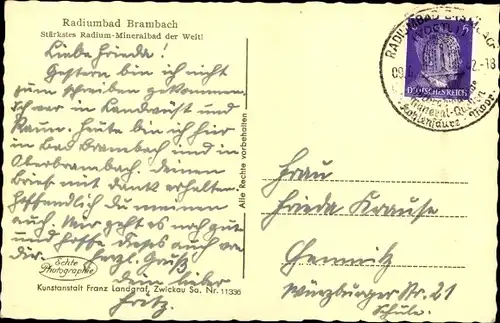 Radiumbad Brambach
Stärkstes Radium-Mineralbad der Welt!
Liebe Frieda!
Gestern bin ich nicht
zum schreiben gekommen.
Ich war in Landwüst und
Raun. Heute bin ich hier
in Bad Brambach und in
Oberbrambach. Deinen
Brief mit Dank erhalten.
Hoffendlich du meinen
auch. Mir geht es noch gut
und hoffe dieses auch von
dir. Herzl. Grüß
dein lieber
Fritz.
Echte
Photographie
Kunstanstalt Franz Landgraf, Zwickau Sa. Nr. 11336
Alle Rechte vorbehalten
RADIUMBAD BRAMBACH
(VOGTL)
6
DEUTSCHES REICH
Mineral-Quellen
Kohlensäure - Moor
Frau
Frieda Krause
Chemnitz
Würzburger Str. 21
Schule.